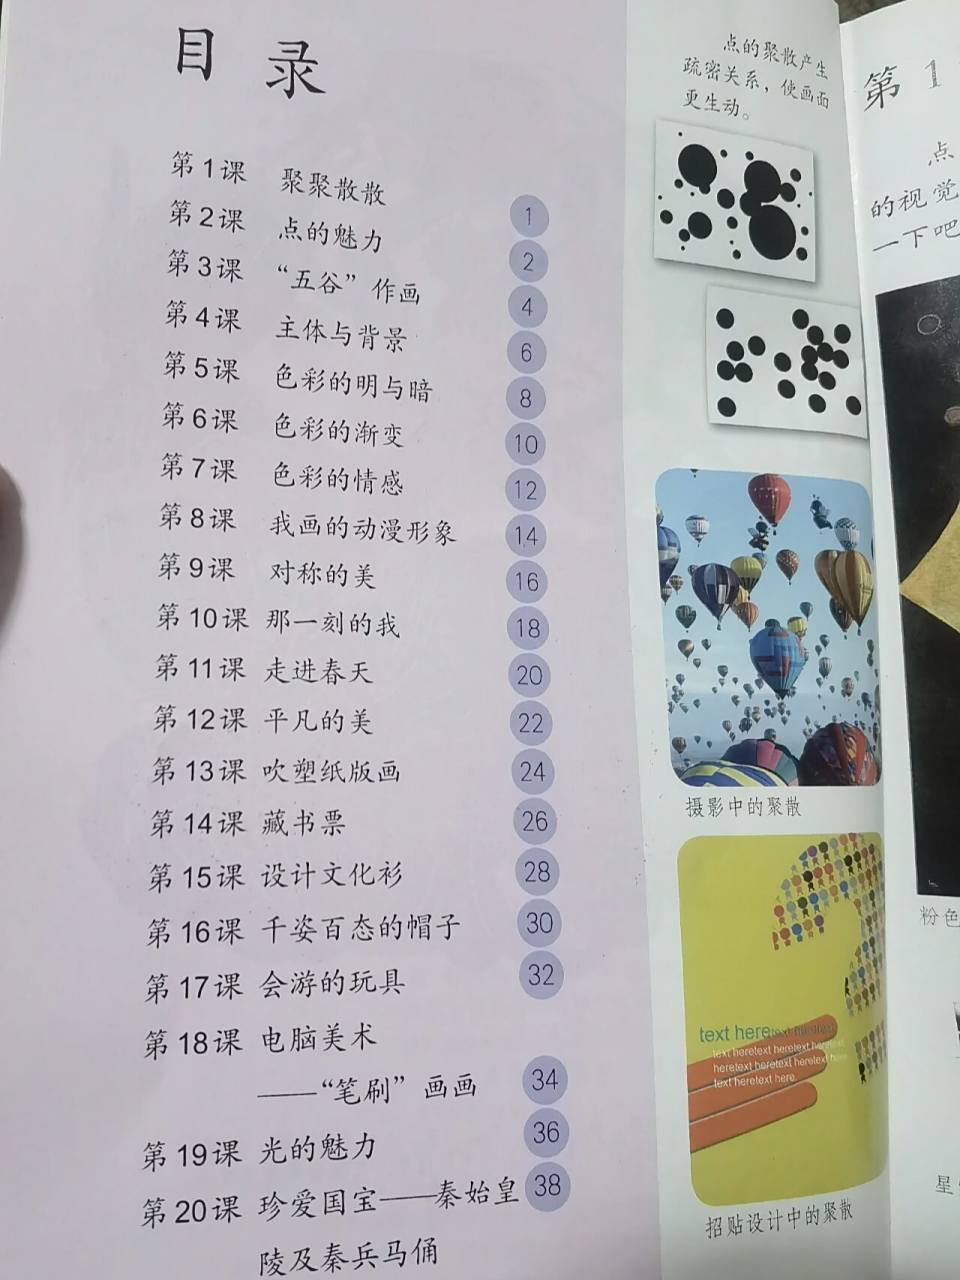 目 录
第1课 聚聚散散 1
第2课 点的魅力 2
第3课 “五谷”作画 4
第4课 主体与背景 6
第5课 色彩的明与暗 8
第6课 色彩的渐变 10
第7课 色彩的情感 12
第8课 我画的动漫形象 14
第9课 对称的美 16
第10课 那一刻的我 18
第11课 走进春天 20
第12课 平凡的美 22
第13课 吹塑纸版画 24
第14课 藏书票 26
第15课 设计文化衫 28
第16课 千姿百态的帽子 30
第17课 会游的玩具 32
第18课 电脑美术
——“笔刷”画画 34
第19课 光的魅力 36
第20课 珍爱国宝——秦始皇 38
陵及秦兵马俑
点的聚散产生
疏密关系，使画面
更生动。
摄影中的聚散
text heretext heretext heretext
text heretext heretext heretext
heretext heretext heretext here
text heretext here.
招贴设计中的聚散
第 1
点
的视觉
一下吧
粉色
星